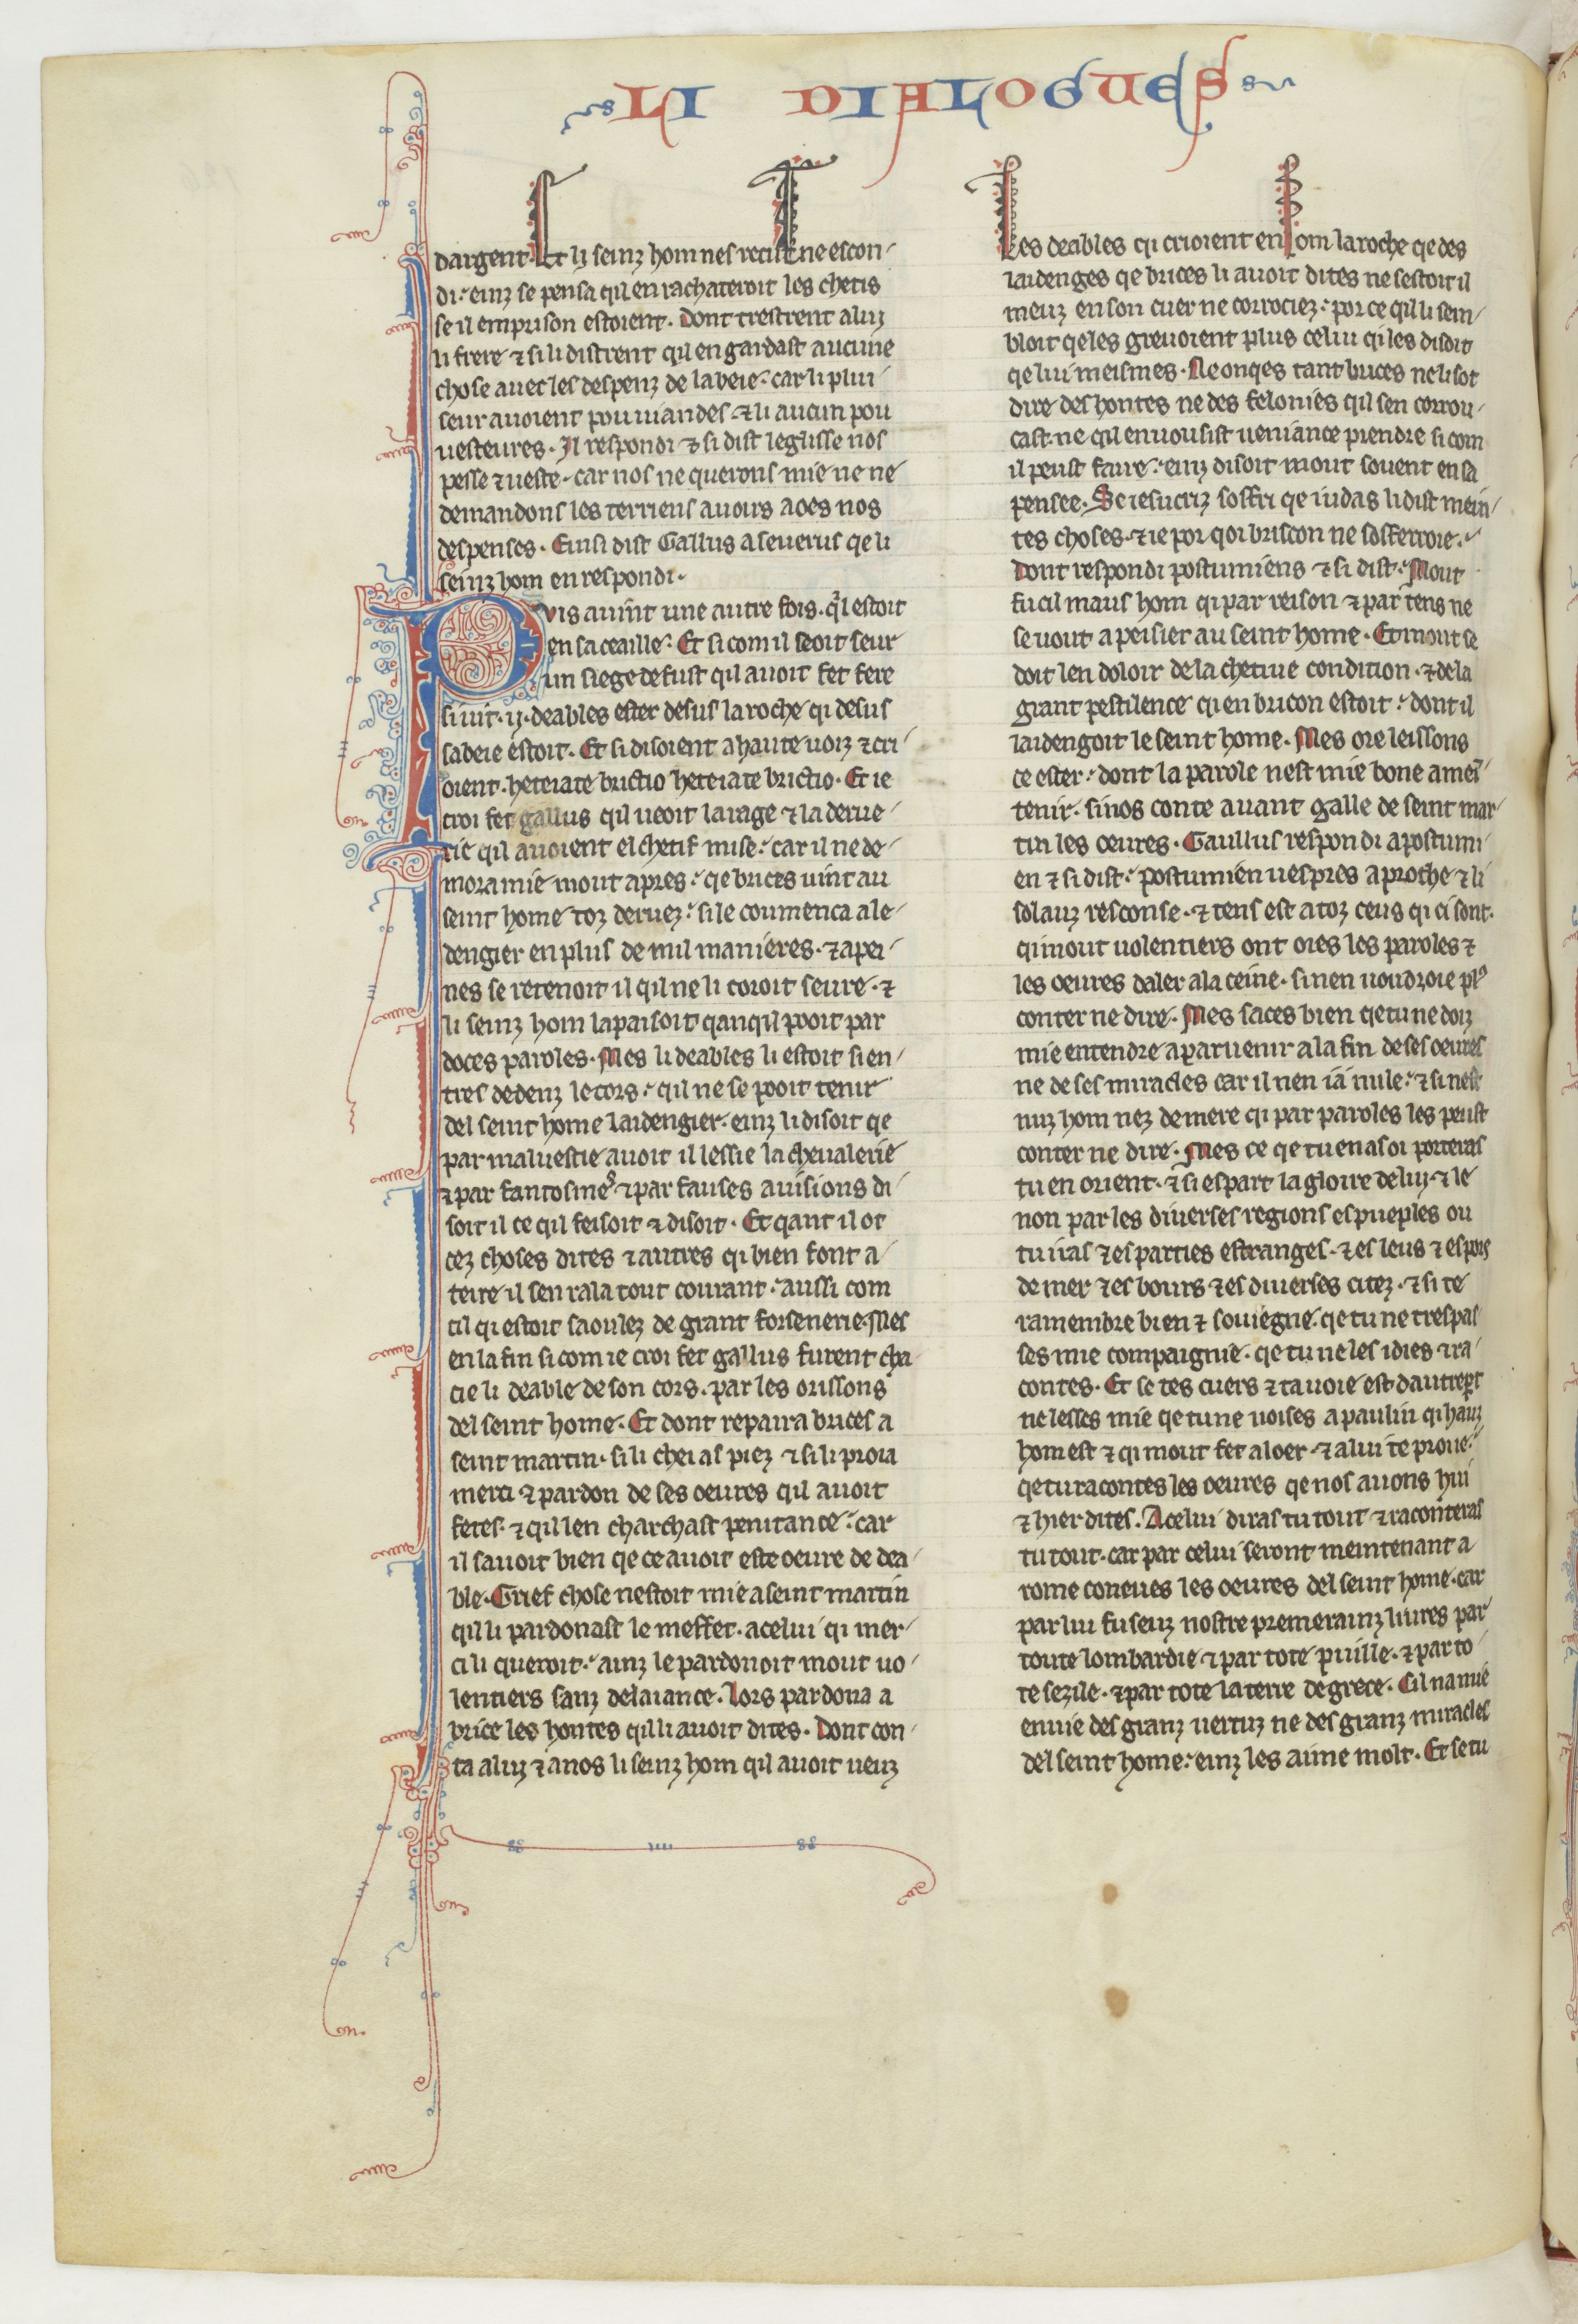 LI DIALOGUES
dargent. Et li seinz hom nes recut ne escon-
di. einz se pensa qil en rachateroit les chetis
se il emprison estoient. Dont trestrent a luy
li frere ⁊ si li distrent qil en gardast aucune
chose avec les despenz de labeie. car li plui
seur avoient pou viandes ⁊ li aucun pou
vesteures. Il respondi ⁊ si dist leglisse nos
pesse ⁊ veste. car nos ne querons mie ne ne
demandons les terriens avoirs a oes nos
despenses. Einsi dist Gallus a severus qe li
seinz hom en respondi.
Puis avint une autre fois. qil estoit
en sa ceaille. Et si com il seoit seur
un siege de fust qil avoit fet fere
si vit .ij. deables ester desus la roche qi desus
sabeie estoit. Et si disoient a haute voiz ⁊ cri-
oient. heteiate brictio heteiate brictio. Et ie
croi fet gallus qil veoit la rage ⁊ la derve-
rie qil avoient el chetif mise. car il ne de-
mora mie mout apres. qe brices vint au
seint home toz dervez. si le coumenca a le-
dengier en plus de mil manieres. ⁊ a pei-
nes se retenoit il qil ne li coroit seure. ⁊
li seinz hom lapaisoit qanqil pooit par
doces paroles. Mes li deables li estoit si en-
tres dedenz le cors. qil ne se pooit tenir
del seint home laidengier. einz li disoit qe
par malvestie avoit il lessie la chevalerie
⁊ par fantosmes ⁊ par fauses avisions di-
soit il ce qil feisoit ⁊ disoit. Et qant il ot
cez choses dites ⁊ autres qi bien font a
teire il sen rala tout courant. aussi com
cil qi estoit saoulez de grant forsenerie. Mes
en la fin si com ie croi fet gallus furent cha-
cie li deable de son cors. par les orissons
del seint home. Et dont repaira brices a
seint martin. si li chei as piez ⁊ si li proia
merci ⁊ pardon de ses oeures qil avoit
fetes. ⁊ qil len charchast penitance. car
il savoit bien qe ce avoit este oeure de dea-
ble. Grief chose nestoit mie a seint martin
qil li pardonast le meffet. a celui qi mer-
ci li queroit. ainz le pardonoit mout vo-
lentiers sanz delaiance. Lors pardona a
brice les hontes qil li avoit dites. Dont con-
ta a luy ⁊ a nos li seinz hom qil avoit veuz
Les deables qi crioient en som la roche qe des
laidenges qe brices li avoit dites ne sestoit il
meuz en son cuer ne corrociez. por ce qil li sem-
bloit qeles grevoient plus celui qi les disoit
qe lui meismes. Ne onqes tant brices ne li sot
dire des hontes ne des felonies qil sen corrou-
cast. ne qil en vousist veniance prendre si com
il peust faire. einz disoit mout sovent en sa
pensee. Se iesucriz soffri qe iudas li dist mein-
tes choses. ⁊ ie por qoi briscon ne sofferroie.
Dont respondi postumiens ⁊ si dist. Mout
fu cil maus hom qi par reison ⁊ par tens ne
se vout apeisier au seint home. Et mout se
doit len doloir de la chetive condition. ⁊ de la
grant pestilence qi en bricon estoit. dont il
laidengoit le seint home. Mes ore leissons
ce ester. dont la parole nest mie bone a mein-
tenir. si nos conte avant galle de seint mar-
tin les oeures. Gaullus respondi a postumi-
en ⁊ si dist. postumien vespres aproche ⁊ li
solauz resconse. ⁊ tens est a toz ceus qi ci sont.
qi mout volentiers ont oies les paroles ⁊
les oeures daler a la ceine. si nen voudroie plus
conter ne dire. Mes saces bien qe tu ne doiz
mie entendre a parvenir a la fin de ses oeures
ne de ses miracles car il nen ia nule. ⁊ si nest
nuz hom nez de mere qi par paroles les peust
conter ne dire. Mes ce qe tu en as oi porteras
tu en orient. ⁊ si espart la gloire de luy. ⁊ le
non par les diverses regions es pueples ou
tu iras ⁊ es parties estranges. ⁊ es leus ⁊ es pors
de mer ⁊ es bours ⁊ es diverses citez. ⁊ si te
ramembre bien ⁊ soviegne. qe tu ne trespas-
ses mie compaignie. qe tu ne les i dies ⁊ ra-
contes. Et se tes cuers ⁊ ta voie est dautrepart
ne lesses mie qe tu ne voises a paulin qi hauz
hom est ⁊ qi mout fet a loer. ⁊ a lui te prove.
qe tu racontes les oeures qe nos avons hui
⁊ hier dites. A celui diras tu tout ⁊ raconteras
tu tout. car par celui seront meintenant a
rome coneues les oeures del seint home. car
par lui fu seuz nostre premerainz livres par
toute lombardie ⁊ par tote puille. ⁊ par to-
te sezile. ⁊ par tote la terre de grece. Cil na mie
envie des granz vertuz ne des granz miracles
del seint home. einz les aime molt. Et se tu